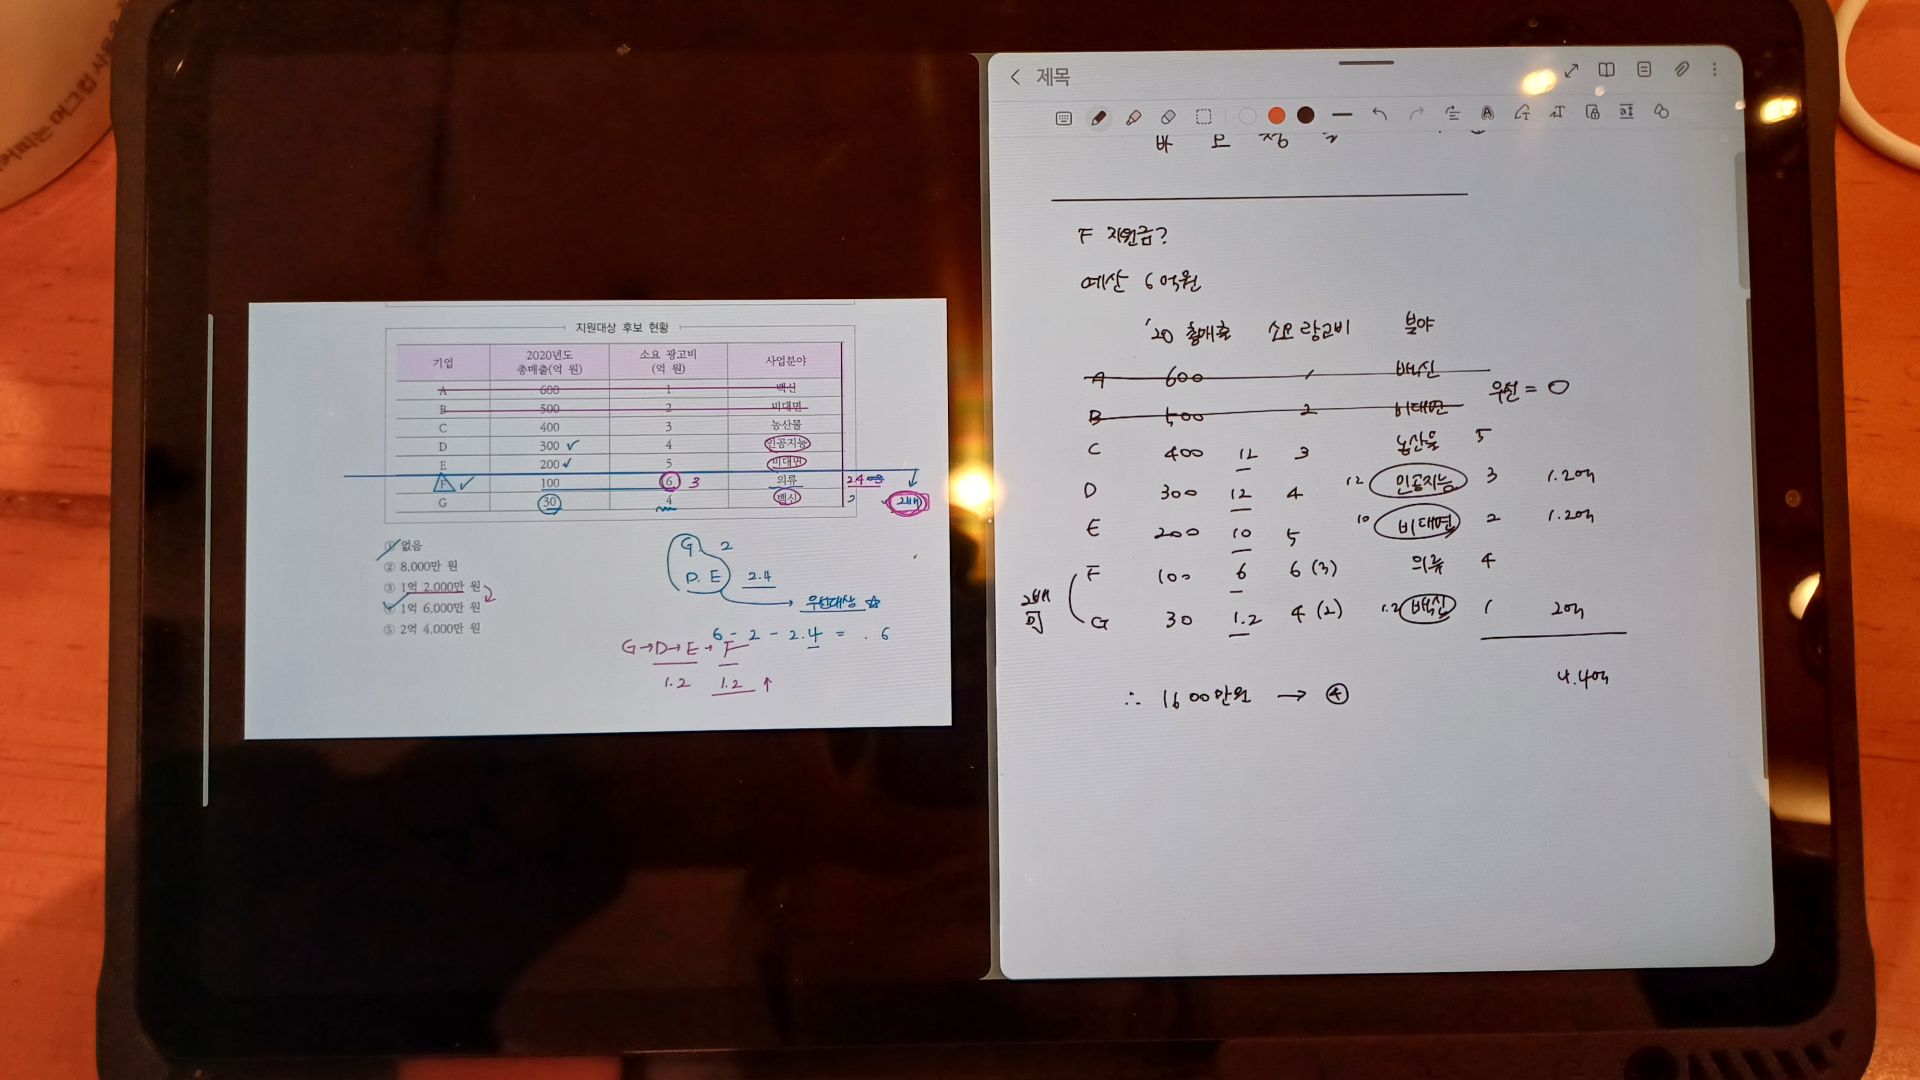 지원대상 후보 현황
기업 2020년도 총매출(억 원) 소요 광고비 (억 원) 사업분야
A 600 1 백신
B 500 2 비대면
C 400 3 농산물
D 300 4 인공지능
E 200 5 비대면
F 100 6 3 의류 2.4
G 30 4 백신 2 2배
① 없음
② 8,000만 원
③ 1억 2,000만 원
④ 1억 6,000만 원
⑤ 2억 4,000만 원
G 2
D. E 2.4
우선대상 ☆
6 - 2 - 2.4 = . 6
G→D→E→F
1.2 1.2 ↑
제목
F 지원금?
예산 6억원
'20 총매출 소요 광고비 분야
A 600 1 백신
우선 = O
B 500 2 비대면
C 400 12 3 농산물 5
D 300 12 4 12 인공지능 3 1.2억
E 200 10 5 10 비대면 2 1.2억
F 100 6 6 (3) 의류 4
2배
G 30 1.2 4 (2) 1.2 백신 1 2억
4.4억
∴ 1600만원 → ④